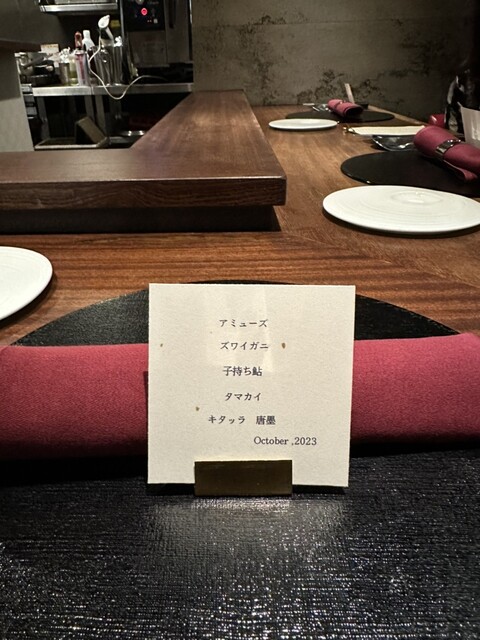 アミューズ
ズワイガニ
子持ち鮎
タマカイ
キタッラ　唐墨
October ,2023